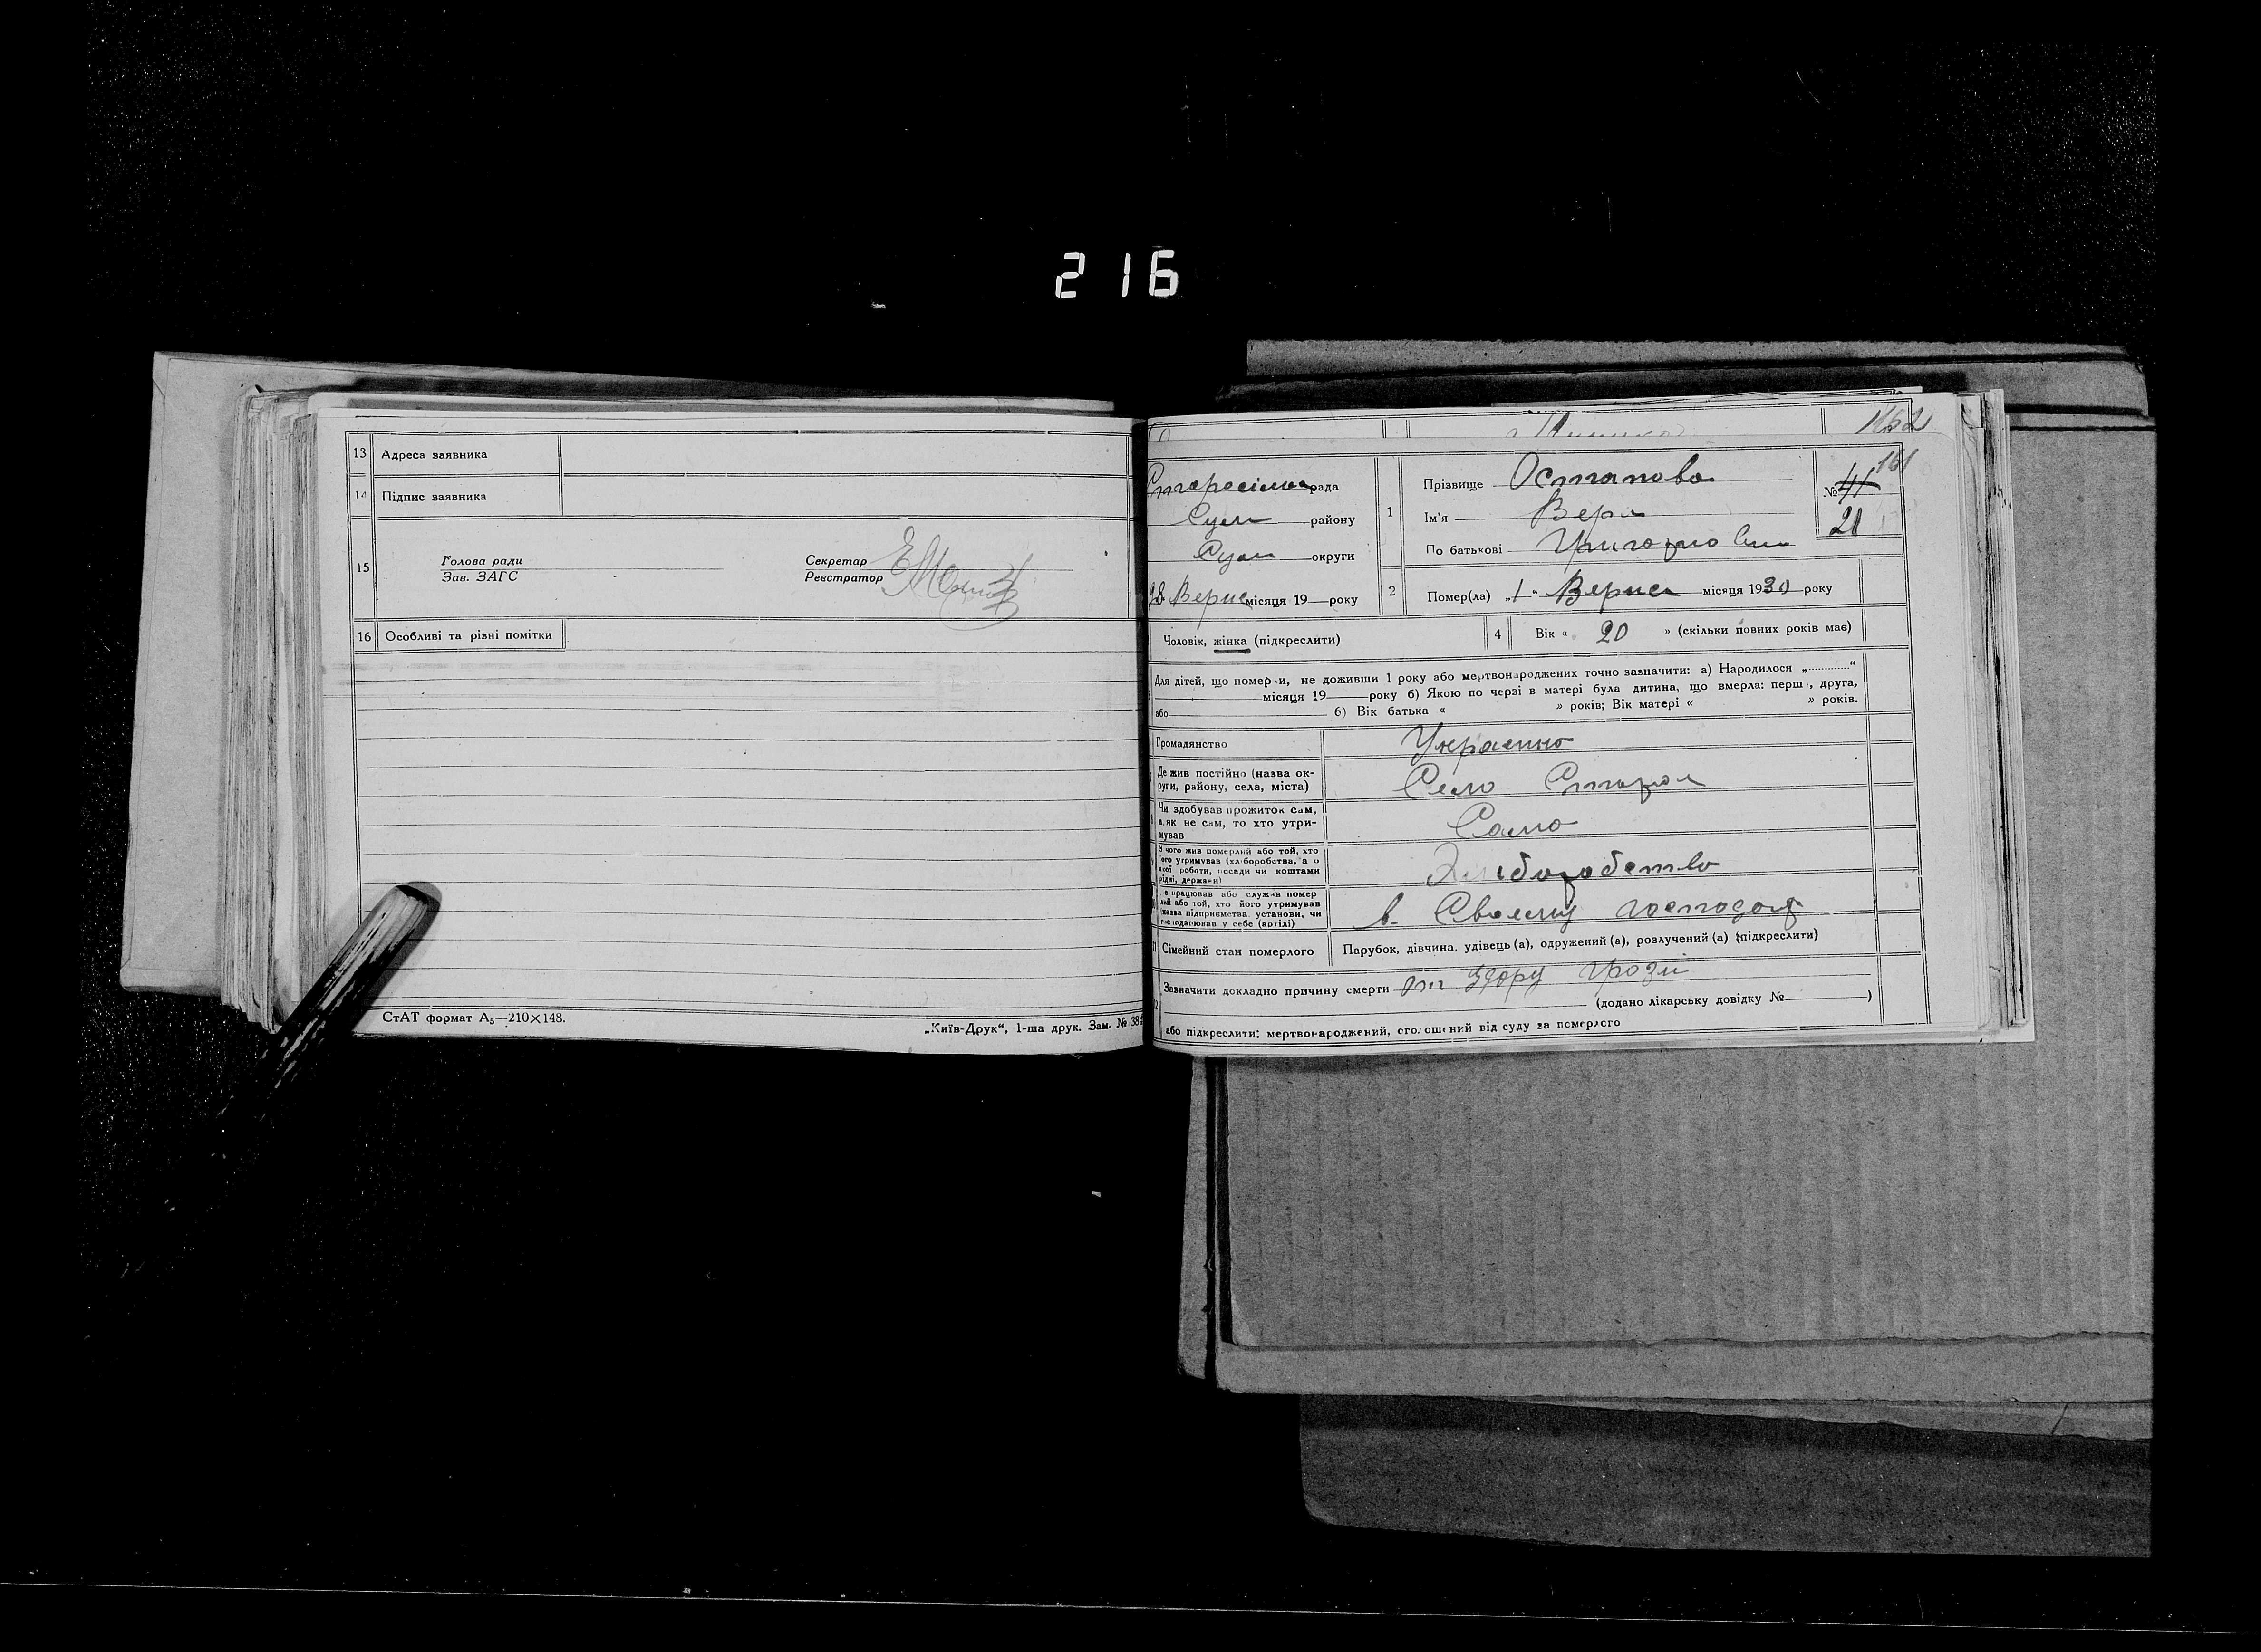 216
13 Адреса заявника
14 Підпис заявника
15 Голова ради
Зав. ЗАГС
Секретар
Реєстратор
16 Особливі та різні помітки
СтАТ формат А₅—210×148.
„Київ-Друк“, 1-ша друк. Зам. № 38
1652
рада
Сум району
Сум округи
Верис місяця 19 року
1 Прізвище Остапова
Ім'я Вера
По батькові
№ 41 161
21
2 Помер(ла) „1“ Верис місяця 1930 року
Чоловік, жінка (підкреслити)
4 Вік « 20 » (скільки повних років має)
Для дітей, що померли, не доживши 1 року або мертвонароджених точно зазначити: а) Народилося „............“
місяця 19 року б) Якою по черзі в матері була дитина, що вмерла: перша, друга,
або б) Вік батька « » років; Вік матері « » років.
Громадянство
Де жив постійно (назва ок-
руги, району, села, міста) Село
Чи здобував прожиток сам,
а як не сам, то хто утри-
мував Само
У чого жив померлий або той, хто
його утримував (хліборобства, а о
кої роботи, посади чи коштами
рідні, держави) Хліборобство
Де працював або служив помер
лий або той, хто його утримував
(назва підприємства, установи, чи
господарював у себе (артілі) в.
11 Сімейний стан померлого Парубок, дівчина, удівець (а), одружений (а), розлучений (а) (підкреслити)
12 Зазначити докладно причину смерти От удару грози
(додано лікарську довідку № )
або підкреслити: мертвонароджений, оголошений від суду за померлого